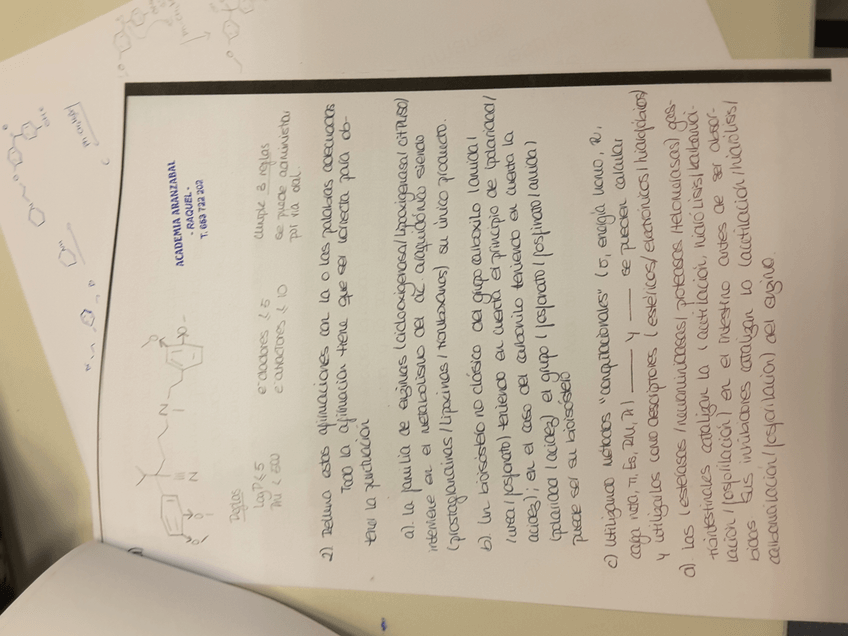 ACADEMIA ARANZABAL
- RAQUEL -
T. 653 722 202
Reglas
LogP ≤ 5
PM < 500
e⁻ dadores ≤ 5
e⁻ atractores ≤ 10
cumple 3 reglas
se puede administrar
por vía oral.
2) Rellena estas afirmaciones con la o las palabras adecuadas
Toda la afirmación tiene que ser correcta para ob-
tener la puntuación
a). La familia de enzimas (ciclooxigenasa/lipooxigenasa/CitP450)
interviene en el metabolismo del ác araquidónico siendo
(prostaglandinas/lipoxinas/tromboxanos) su único producto.
b). Un bioisóstero no clásico del grupo carboxilo (amida/
/urea/fosfonato) teniendo en cuenta el principio de (polaridad/
acidez); en el caso del carbonilo teniendo en cuenta la
(polaridad/acidez) el grupo (fosfonato/fosfinato/amida)
puede ser su bioisóstero
c) Utilizando métodos "computacionales" (σ, energía HOMO, R,
carga neta, π, Es, PM, ) ____ y ____ se pueden calcular
y utilizarlos como descriptores (estéricos/electrónicos/hidrofóbicos)
d). Las (esterasas/neuraminidasas/proteasas/helicasas) gas-
trointestinales catalizan la (acetilación/hidrólisis/carbamoi-
lación/fosforilación) en el intestino antes de ser absor-
bidas
Sus inhibidores catalizan la (acetilación/hidrólisis/
carbamoilación/fosforilación) del enzima.